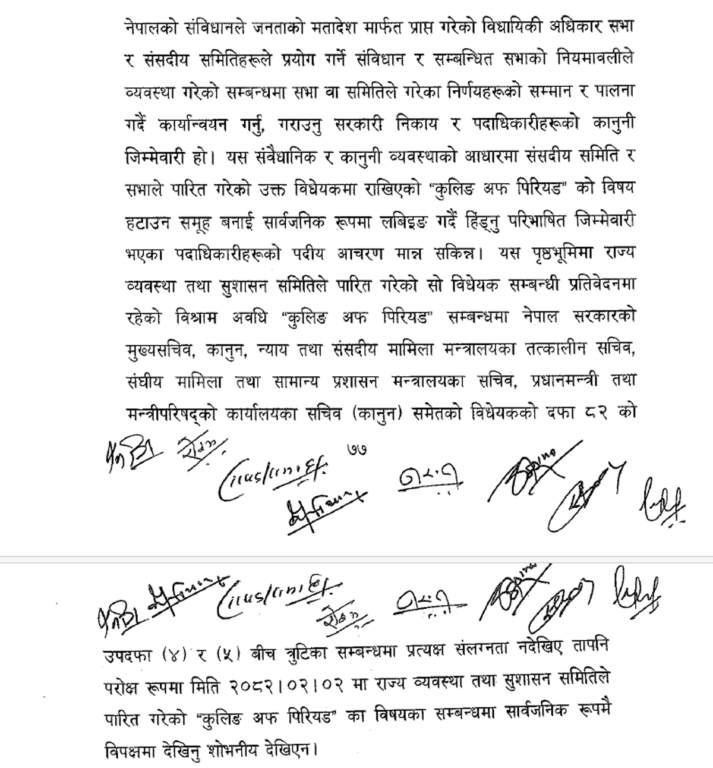 नेपालको संविधानले जनताको मतादेश मार्फत प्राप्त गरेको विधायिकी अधिकार सभा
र संसदीय समितिहरूले प्रयोग गर्ने संविधान र सम्बन्धित सभाको नियमावलीले
व्यवस्था गरेको सम्बन्धमा सभा वा समितिले गरेका निर्णयहरूको सम्मान र पालना
गर्दै कार्यान्वयन गर्नु, गराउनु सरकारी निकाय र पदाधिकारीहरूको कानुनी
जिम्मेवारी हो। यस संवैधानिक र कानुनी व्यवस्थाको आधारमा संसदीय समिति र
सभाले पारित गरेको उक्त विधेयकमा राखिएको "कुलिङ अफ पिरियड" को विषय
हटाउन समूह बनाई सार्वजनिक रूपमा लबिइङ गर्दै हिंड्नु परिभाषित जिम्मेवारी
भएका पदाधिकारीहरूको पदीय आचरण मान्न सकिन्न। यस पृष्ठभूमिमा राज्य
व्यवस्था तथा सुशासन समितिले पारित गरेको सो विधेयक सम्बन्धी प्रतिवेदनमा
रहेको विश्राम अवधि "कुलिङ अफ पिरियड" सम्बन्धमा नेपाल सरकारको
मुख्यसचिव, कानुन, न्याय तथा संसदीय मामिला मन्त्रालयका तत्कालीन सचिव,
संघीय मामिला तथा सामान्य प्रशासन मन्त्रालयका सचिव, प्रधानमन्त्री तथा
मन्त्रीपरिषद्को कार्यालयका सचिव (कानुन) समेतको विधेयकको दफा ८२ को
७७
उपदफा (४) र (५) बीच त्रुटिका सम्बन्धमा प्रत्यक्ष संलग्नता नदेखिए तापनि
परोक्ष रूपमा मिति २०८२।०२।०२ मा राज्य व्यवस्था तथा सुशासन समितिले
पारित गरेको "कुलिङ अफ पिरियड" का विषयका सम्बन्धमा सार्वजनिक रूपमै
विपक्षमा देखिनु शोभनीय देखिएन।